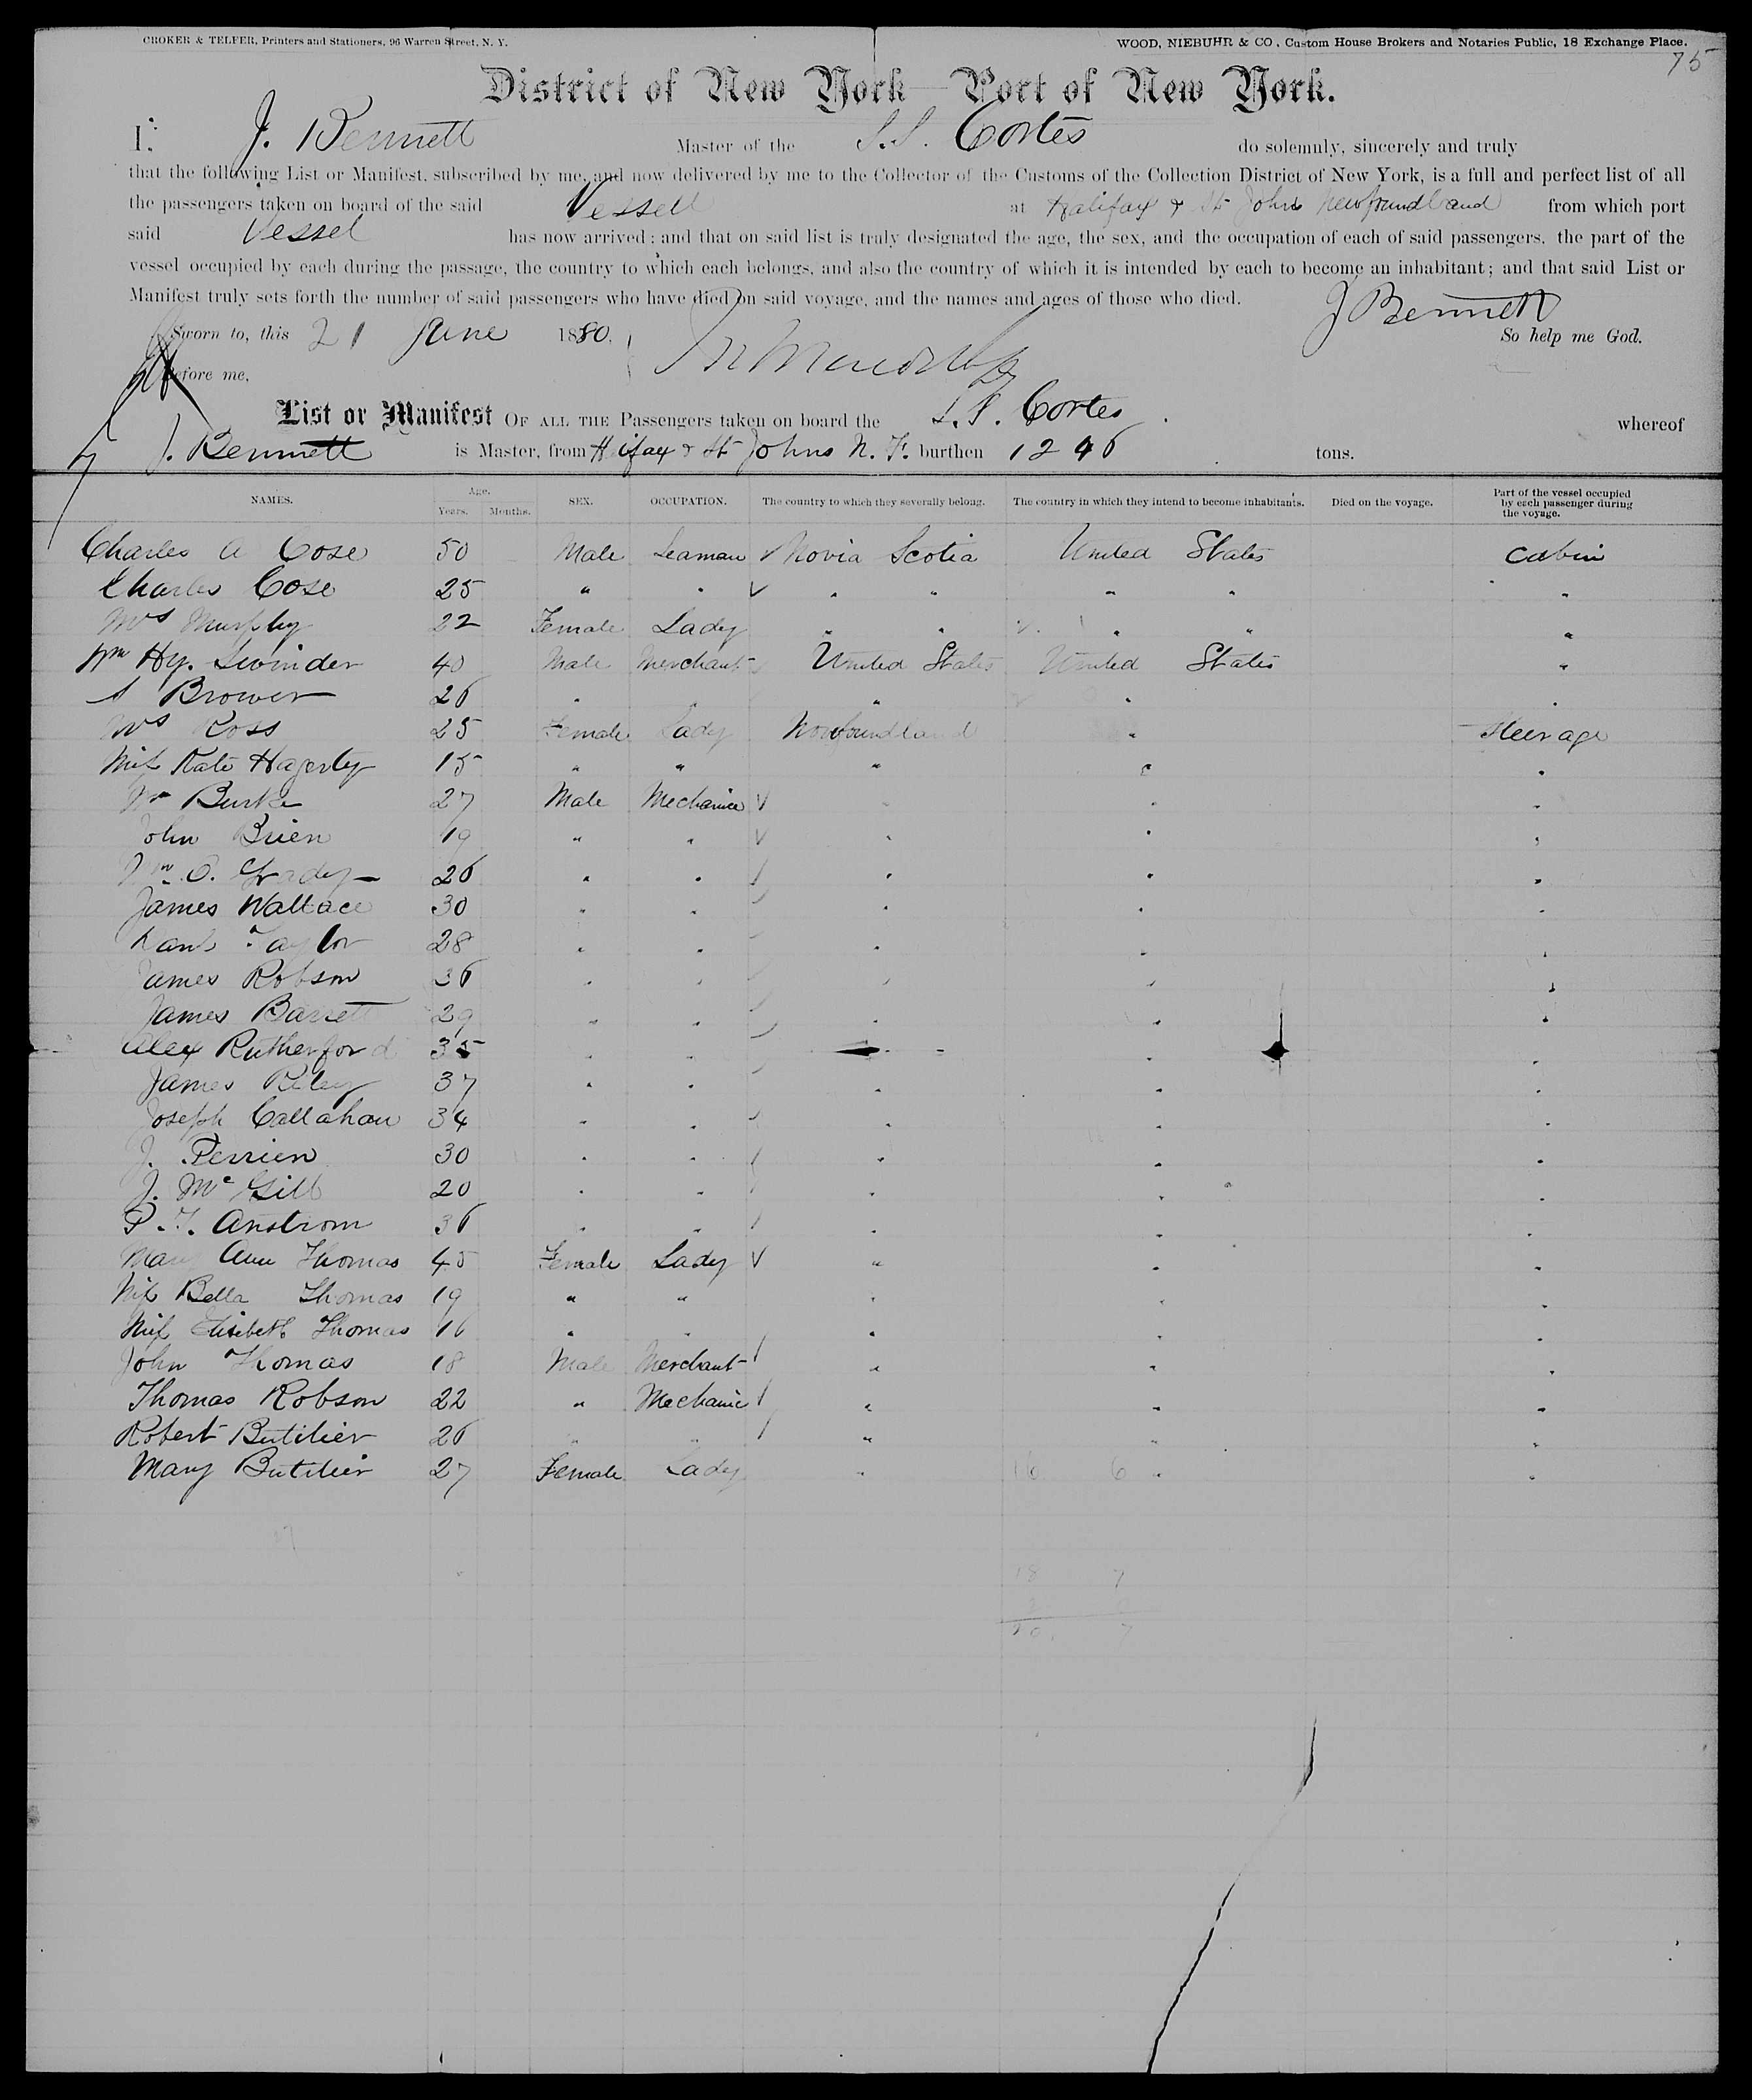 CROKER & TELFER, Printers and Stationers, 96 Warren Street, N. Y. WOOD, NIEBUHR & CO, Custom House Brokers and Notaries Public, 18 Exchange Place.
75
District of New York—Port of New York.
I, J. Bennett Master of the S.S. Cortes do solemnly, sincerely and truly
that the following List or Manifest, subscribed by me, and now delivered by me to the Collector of the Customs of the Collection District of New York, is a full and perfect list of all
the passengers taken on board of the said Vessell at Halifax & St Johns Newfoundland from which port
said Vessel has now arrived; and that on said list is truly designated the age, the sex, and the occupation of each of said passengers, the part of the
vessel occupied by each during the passage, the country to which each belongs, and also the country of which it is intended by each to become an inhabitant; and that said List or
Manifest truly sets forth the number of said passengers who have died on said voyage, and the names and ages of those who died.
J Bennett
Sworn to, this 21 June 1880, So help me God.
Before me,
List or Manifest OF ALL THE Passengers taken on board the S.S. Cortes whereof
J. Bennett is Master, from Hifax & St Johns N. F. burthen 1246 tons.
NAMES. Age. Years. Months. SEX. OCCUPATION. The country to which they severally belong. The country in which they intend to become inhabitants. Died on the voyage. Part of the vessel occupied by each passenger during the voyage.
Charles A Cose 50 Male Seaman Novia Scotia United States Cabin
Charles Cose 25 " " " " " " "
Mrs Murphy 22 Female Lady " " " " "
Wm Hy. Swinder 40 Male Merchant United States United States "
A Brower 26 " " " " "
Mrs Ross 25 Female Lady Newfoundland " Steerage
Miss Kate Hagerty 15 " " " " "
Mr Burke 27 Male Mechanic " " "
John Brien 19 " " " " "
Wm O. Grady 26 " " " " "
James Wallace 30 " " " " "
Danl Taylor 28 " " " " "
James Robson 36 " " " " "
James Barrett 29 " " " " "
Alex Rutherford 35 " " " " "
James Riley 37 " " " " "
Joseph Callahan 34 " " " " "
J. Perrien 30 " " " " "
J. Mc Gill 20 " " " " "
P. T. Anstrom 36 " " " " "
Mary Ann Thomas 45 Female Lady " " "
Miss Bella Thomas 19 " " " " "
Miss Elisibeth Thomas 16 " " " " "
John Thomas 18 Male Merchant " " "
Thomas Robson 22 " Mechanic " " "
Robert Butilier 26 " " " " "
Mary Butilier 27 Female Lady " 16 6 " "
18 7
20 7